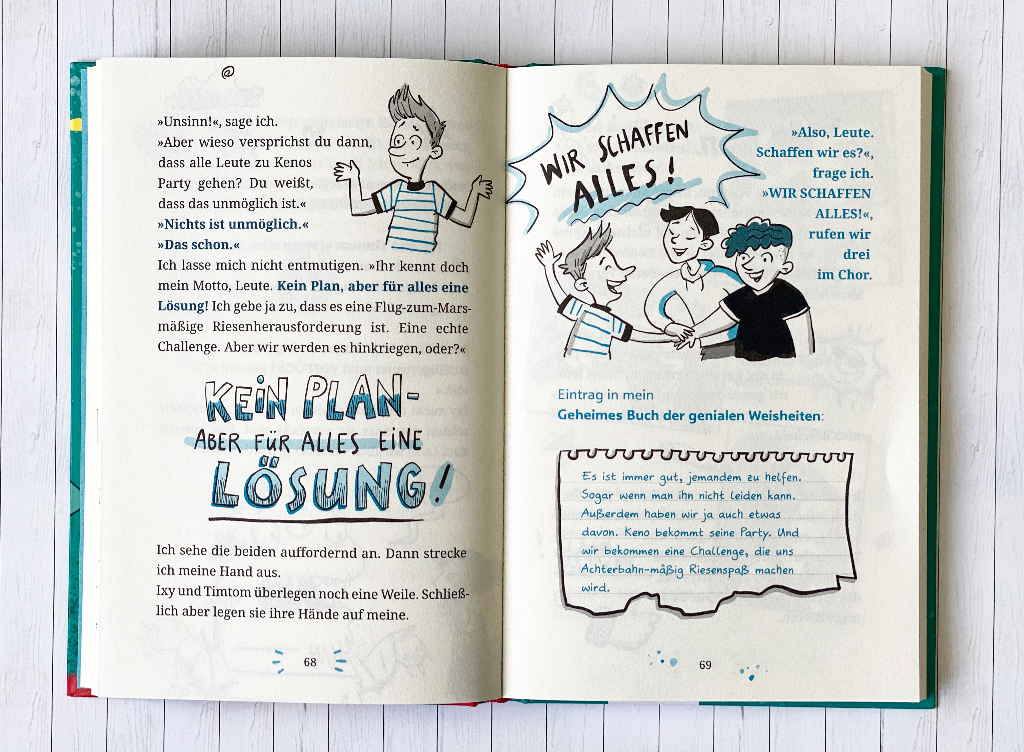 »Unsinn!«, sage ich.
»Aber wieso versprichst du dann,
dass alle Leute zu Kenos
Party gehen? Du weißt,
dass das unmöglich ist.«
»Nichts ist unmöglich.«
»Das schon.«
Ich lasse mich nicht entmutigen. »Ihr kennt doch
mein Motto, Leute. Kein Plan, aber für alles eine
Lösung! Ich gebe ja zu, dass es eine Flug-zum-Mars-
mäßige Riesenherausforderung ist. Eine echte
Challenge. Aber wir werden es hinkriegen, oder?«
KEIN PLAN-
ABER FÜR ALLES EINE
LÖSUNG!
Ich sehe die beiden auffordernd an. Dann strecke
ich meine Hand aus.
Ixy und Timtom überlegen noch eine Weile. Schließ-
lich aber legen sie ihre Hände auf meine.
68
WIR SCHAFFEN
ALLES!
»Also, Leute.
Schaffen wir es?«,
frage ich.
»WIR SCHAFFEN
ALLES!«,
rufen wir
drei
im Chor.
Eintrag in mein
Geheimes Buch der genialen Weisheiten:
Es ist immer gut, jemandem zu helfen.
Sogar wenn man ihn nicht leiden kann.
Außerdem haben wir ja auch etwas
davon. Keno bekommt seine Party. Und
wir bekommen eine Challenge, die uns
Achterbahn-mäßig Riesenspaß machen
wird.
69